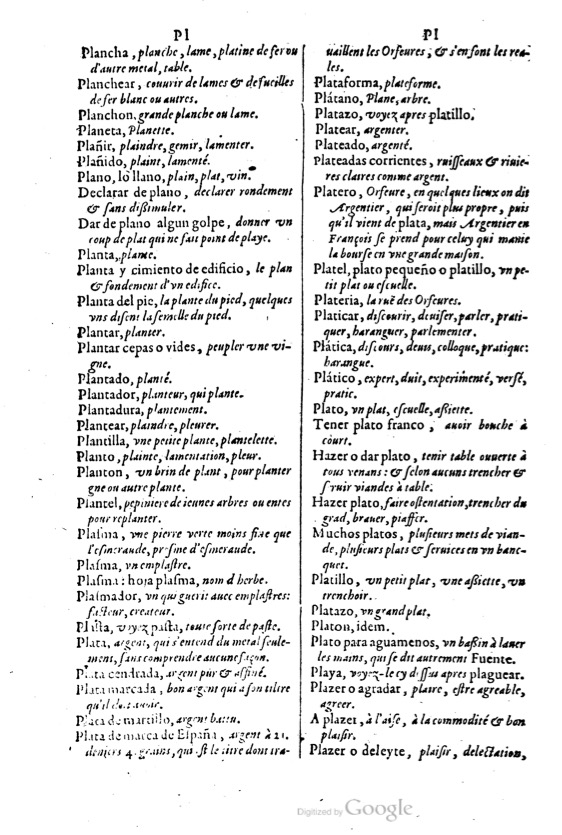 Pl
Plancha, planche, lame, platine de fer ou
d'autre metal, table.
Planchear, couurir de lames & de fueilles
de fer blanc ou autres.
Planchon, grande planche ou lame.
Planeta, Planette.
Plañir, plaindre, gemir, lamenter.
Plañido, plaint, lamenté.
Plano, lo llano, plain, plat, vin.
Declarar de plano, declarer rondement
& sans dißimuler.
Dar de plano algun golpe, donner vn
coup de plat qui ne fait point de playe.
Planta, plante.
Planta y cimiento de edificio, le plan
& fondement d'vn edifice.
Planta del pie, la plante du pied, quelques
vns disent la semelle du pied.
Plantar, planter.
Plantar cepas o vides, peupler vne vi-
gne.
Plantado, planté.
Plantador, planteur, qui plante.
Plantadura, plantement.
Plantear, plaindre, pleurer.
Plantilla, vne petite plante, plantelette.
Planto, plainte, lamentation, pleur.
Planton, vn brin de plant, pour planter
gne ou autre plante.
Plantel, pepiniere de ieunes arbres ou entes
pour replanter.
Plasma, vne pierre verte moins fine que
l'esmeraude, presine d'esmeraude.
Plasma, vn emplastre.
Plasma: hoja plasma, nom d'herbe.
Plasmador, vn qui guerit auec emplastres:
facteur, createur.
Plasta, voyez pasta, toute sorte de paste.
Plata, argent, qui s'entend du metal seule-
ment, sans comprendre aucune façon.
Plata cendrada, argent pur & affiné.
Plata marcada, bon argent qui a son tiltre
qu'il doit auoir.
Placa de martillo, argent battu.
Plata de marca de España, argent à 11.
deniers 4. grains, qui est le titre dont tra-
Pl
uaillent les Orfeures, & s'en font les rea-
les.
Plataforma, plateforme.
Plátano, Plane, arbre.
Platazo, voyez apres platillo.
Platear, argenter.
Plateado, argenté.
Plateadas corrientes, ruisseaux & riuie-
res claires comme argent.
Platero, Orfeure, en quelques lieux on dit
Argentier, qui seroit plus propre, puis
qu'il vient de plata, mais Argentier en
François se prend pour celuy qui manie
la bourse en vne grande maison.
Platel, plato pequeño o platillo, vn pe-
tit plat ou escuelle.
Plateria, la ruë des Orfeures.
Platicar, discourir, deuiser, parler, prati-
quer, haranguer, parlementer.
Plática, discours, deuis, colloque, pratique:
harangue.
Plático, expert, duit, experimenté, versé,
pratic.
Plato, vn plat, escuelle, aßiette.
Tener plato franco, auoir bouche à
court.
Hazer o dar plato, tenir table ouuerte à
tous venans: & selon aucuns trencher &
seruir viandes à table.
Hazer plato, faire ostentation, trencher du
grad, brauer, piaffer.
Muchos platos, plusieurs mets de vian-
de, plusieurs plats & seruices en vn banc-
quet.
Platillo, vn petit plat, vne aßiette, vn
trenchoir.
Platazo, vn grand plat.
Platon, idem.
Plato para aguamenos, vn baßin à lauer
les mains, qui se dit autrement Fuente.
Playa, voyez-le cy dessus apres plaguear.
Plazer o agradar, plaire, estre agreable,
agreer.
A plazer, à l'aise, à la commodité & bon
plaisir.
Plazer o deleyte, plaisir, delectation,
Digitized by Google